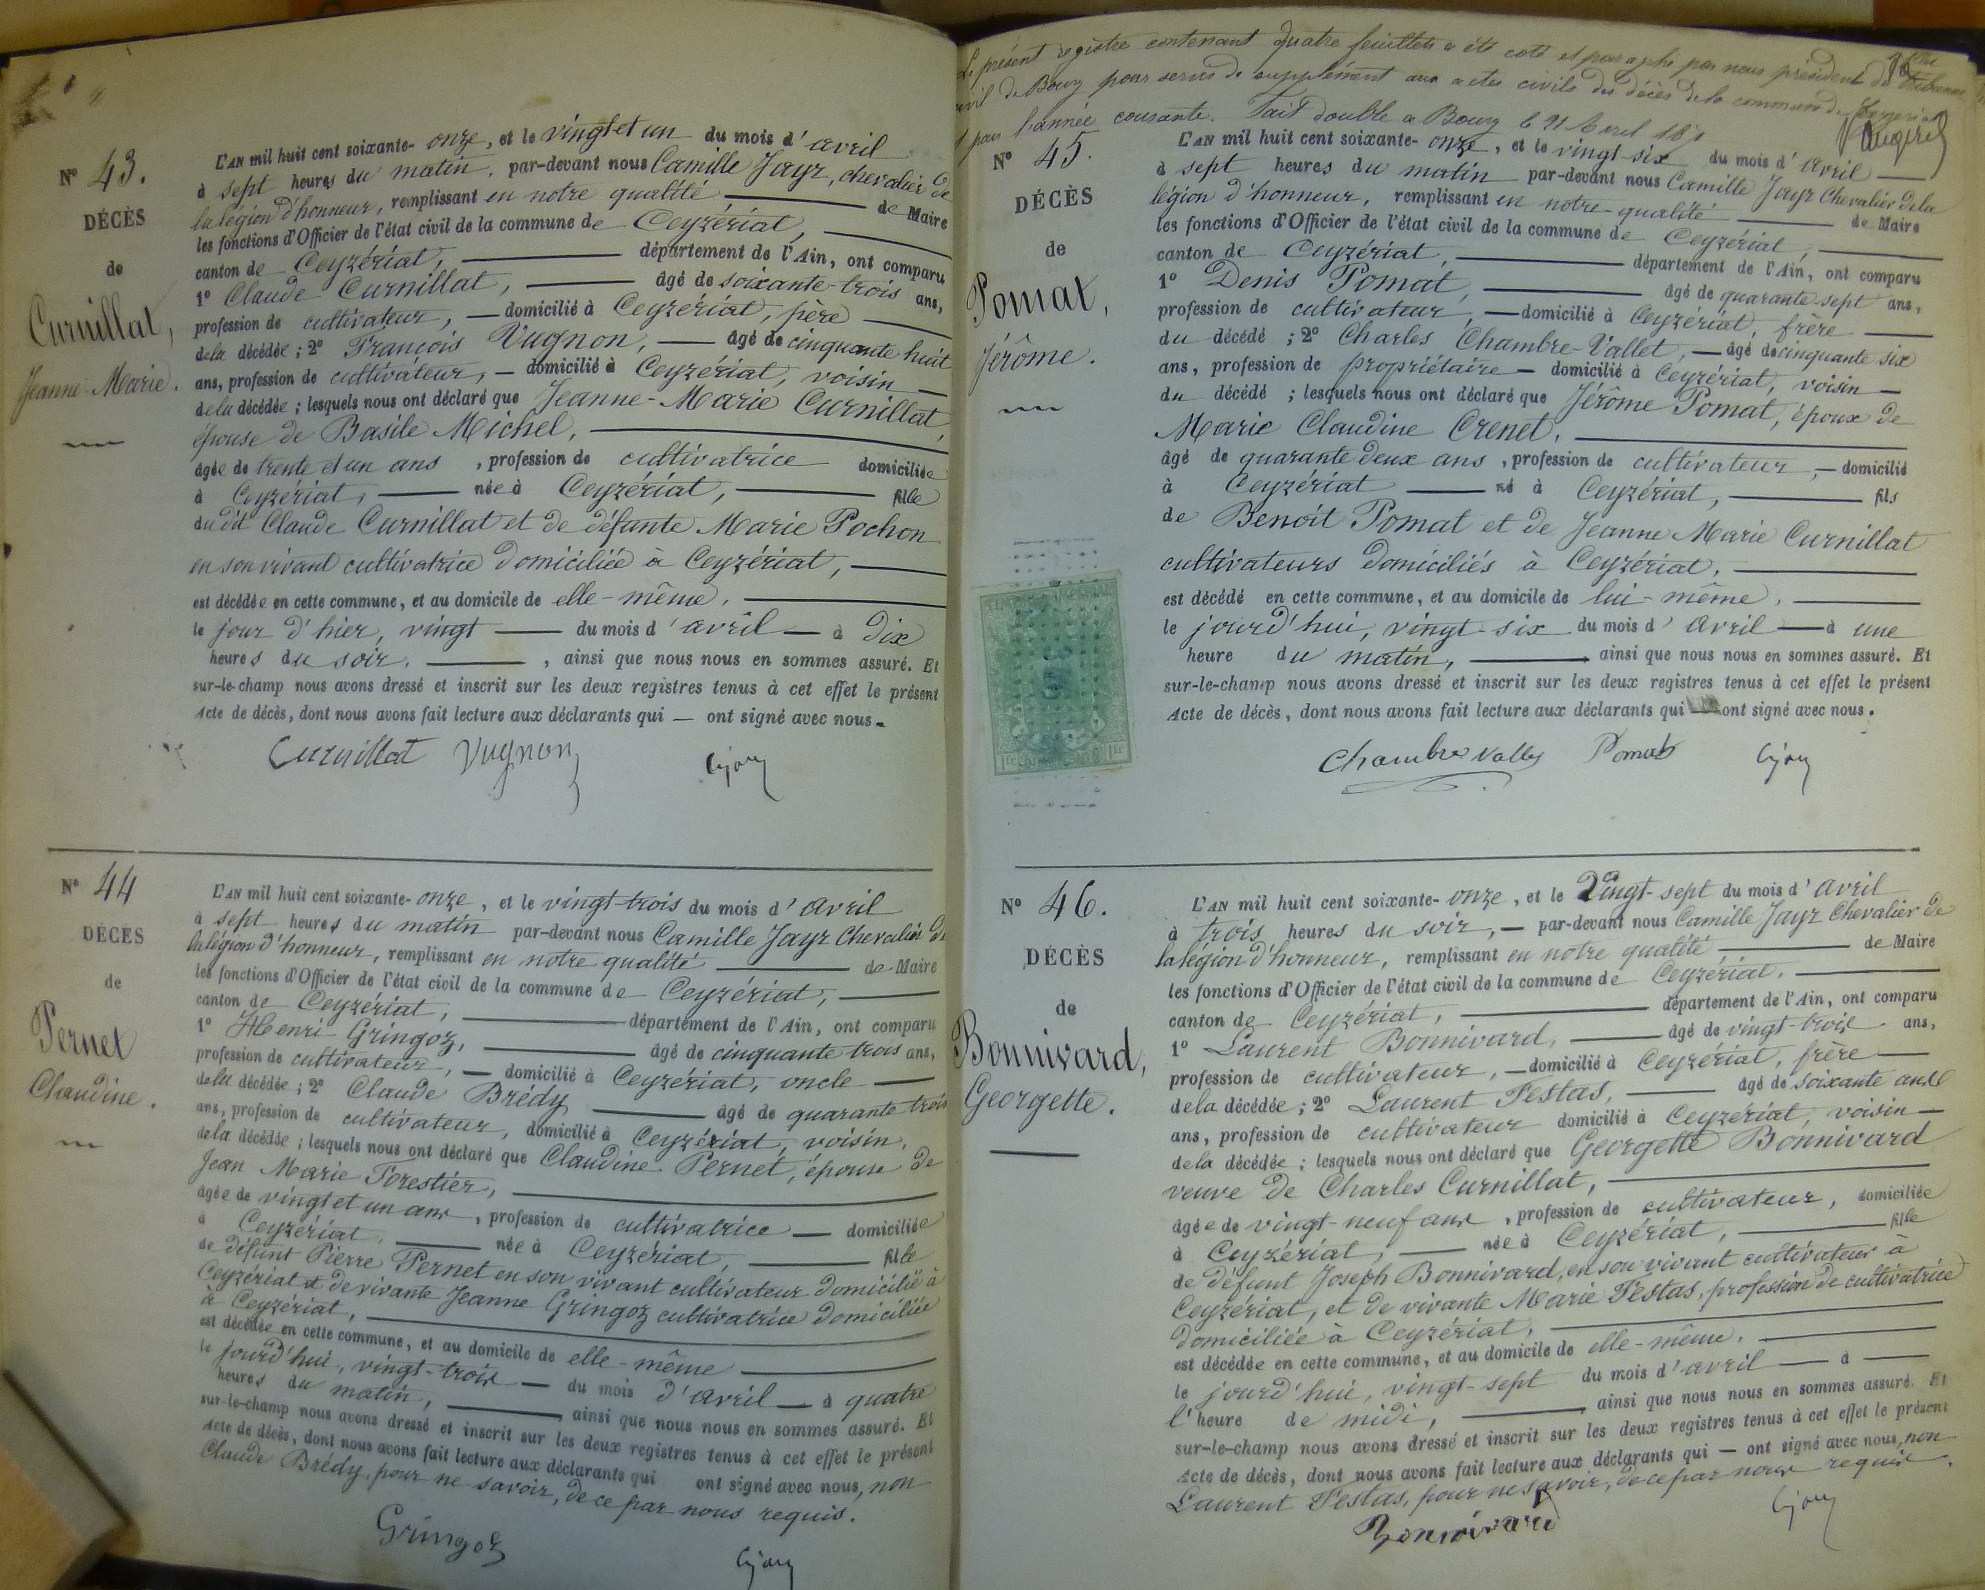 N° 43.
DÉCÈS
de
Curnillat,
Jeanne-Marie.
L'AN mil huit cent soixante-onze, et le vingt et un du mois d'avril
à sept heures du matin, par-devant nous Camille Jayr, chevalier de
la légion d'honneur, remplissant en notre qualité de Maire
les fonctions d'Officier de l'état civil de la commune de Ceyzériat,
canton de Ceyzériat, département de l'Ain, ont comparu
1° Claude Curnillat, âgé de soixante-trois ans,
profession de cultivateur, domicilié à Ceyzériat, père
de la décédée ; 2° François Vugnon, âgé de cinquante huit
ans, profession de cultivateur, domicilié à Ceyzériat, voisin
de la décédée ; lesquels nous ont déclaré que Jeanne-Marie Curnillat,
épouse de Basile Michel,
âgée de trente et un ans, profession de cultivatrice domiciliée
à Ceyzériat, née à Ceyzériat, fille
du dit Claude Curnillat et de défunte Marie Pochon
en son vivant cultivatrice domiciliée à Ceyzériat,
est décédée en cette commune, et au domicile de elle-même,
le jour d'hier, vingt du mois d'avril à dix
heures du soir, , ainsi que nous nous en sommes assuré. Et
sur-le-champ nous avons dressé et inscrit sur les deux registres tenus à cet effet le présent
Acte de décès, dont nous avons fait lecture aux déclarants qui — ont signé avec nous.
Curnillat Vugnon CJayr
N° 44
DÉCÈS
de
Pernet
Claudine.
L'AN mil huit cent soixante-onze, et le vingt-trois du mois d'avril
à sept heures du matin par-devant nous Camille Jayr Chevalier de
la légion d'honneur, remplissant en notre qualité de Maire
les fonctions d'Officier de l'état civil de la commune de Ceyzériat,
canton de Ceyzériat, département de l'Ain, ont comparu
1° Henri Gringoz, âgé de cinquante trois ans,
profession de cultivateur, domicilié à Ceyzériat, oncle
de la décédée ; 2° Claude Brédy âgé de quarante trois
ans, profession de cultivateur, domicilié à Ceyzériat, voisin,
de la décédée ; lesquels nous ont déclaré que Claudine Pernet, épouse de
Jean Marie Forestier,
âgée de vingt et un ans, profession de cultivatrice — domiciliée
à Ceyzériat, née à Ceyzériat, fille
de défunt Pierre Pernet en son vivant cultivateur domicilié à
Ceyzériat et de vivante Jeanne Gringoz cultivatrice domiciliée
à Ceyzériat,
est décédée en cette commune, et au domicile de elle-même
le jourd'hui, vingt-trois — du mois d'avril — à quatre
heures du matin, ainsi que nous nous en sommes assuré. Et
sur-le-champ nous avons dressé et inscrit sur les deux registres tenus à cet effet le présent
Acte de décès, dont nous avons fait lecture aux déclarants qui ont signé avec nous, non
Claude Brédy, pour ne savoir, de ce par nous requis.
Gringoz CJayr
Le présent registre contenant quatre feuillets a été coté et paraphé par nous président du tribunal
civil de Bourg pour servir de supplément aux actes civils des décès de la commune de Ceyzériat
pour l'année courante. Fait double à Bourg le 21 Avril 1871
N° 45.
DÉCÈS
de
Pomat,
Jérôme.
L'AN mil huit cent soixante-onze, et le vingt-six du mois d'avril
à sept heures du matin par-devant nous Camille Jayr Chevalier de la
légion d'honneur, remplissant en notre qualité de Maire
les fonctions d'Officier de l'état civil de la commune de Ceyzériat,
canton de Ceyzériat, département de l'Ain, ont comparu
1° Denis Pomat, âgé de quarante-sept ans,
profession de cultivateur, domicilié à Ceyzériat, frère
du décédé ; 2° Charles Chambre-Vallet, âgé de cinquante six
ans, profession de propriétaire — domicilié à Ceyzériat, voisin
du décédé ; lesquels nous ont déclaré que Jérôme Pomat, époux de
Marie Claudine Crenet,
âgé de quarante deux ans, profession de cultivateur, domicilié
à Ceyzériat né à Ceyzériat, fils
de Benoit Pomat et de Jeanne Marie Curnillat
cultivateurs domiciliés à Ceyzériat,
est décédé en cette commune, et au domicile de lui-même,
le jourd'hui, vingt-six du mois d'avril — à une
heure du matin, ainsi que nous nous en sommes assuré. Et
sur-le-champ nous avons dressé et inscrit sur les deux registres tenus à cet effet le présent
Acte de décès, dont nous avons fait lecture aux déclarants qui ont signé avec nous.
Chambre Vallet Pomat CJayr
N° 46.
DÉCÈS
de
Bonnivard,
Georgette.
L'AN mil huit cent soixante-onze, et le Vingt-sept du mois d'avril
à trois heures du soir, — par-devant nous Camille Jayr Chevalier de
la légion d'honneur, remplissant en notre qualité de Maire
les fonctions d'Officier de l'état civil de la commune de Ceyzériat,
canton de Ceyzériat, département de l'Ain, ont comparu
1° Laurent Bonnivard, âgé de vingt-trois ans,
profession de cultivateur, domicilié à Ceyzériat, frère
de la décédée ; 2° Laurent Festas, âgé de soixante
ans, profession de cultivateur domicilié à Ceyzériat, voisin
de la décédée ; lesquels nous ont déclaré que Georgette Bonnivard
veuve de Charles Curnillat,
âgée de vingt-neuf ans, profession de cultivateur, domiciliée
à Ceyzériat, née à Ceyzériat, fille
de défunt Joseph Bonnivard, en son vivant cultivateur à
Ceyzériat, et de vivante Marie Festas, profession de cultivatrice
domiciliée à Ceyzériat,
est décédée en cette commune, et au domicile de elle-même,
le jourd'hui, vingt-sept du mois d'avril — à
l'heure de midi, ainsi que nous nous en sommes assuré. Et
sur-le-champ nous avons dressé et inscrit sur les deux registres tenus à cet effet le présent
Acte de décès, dont nous avons fait lecture aux déclarants qui — ont signé avec nous, non
Laurent Festas, pour ne savoir, de ce par nous requis.
Bonnivard CJayr